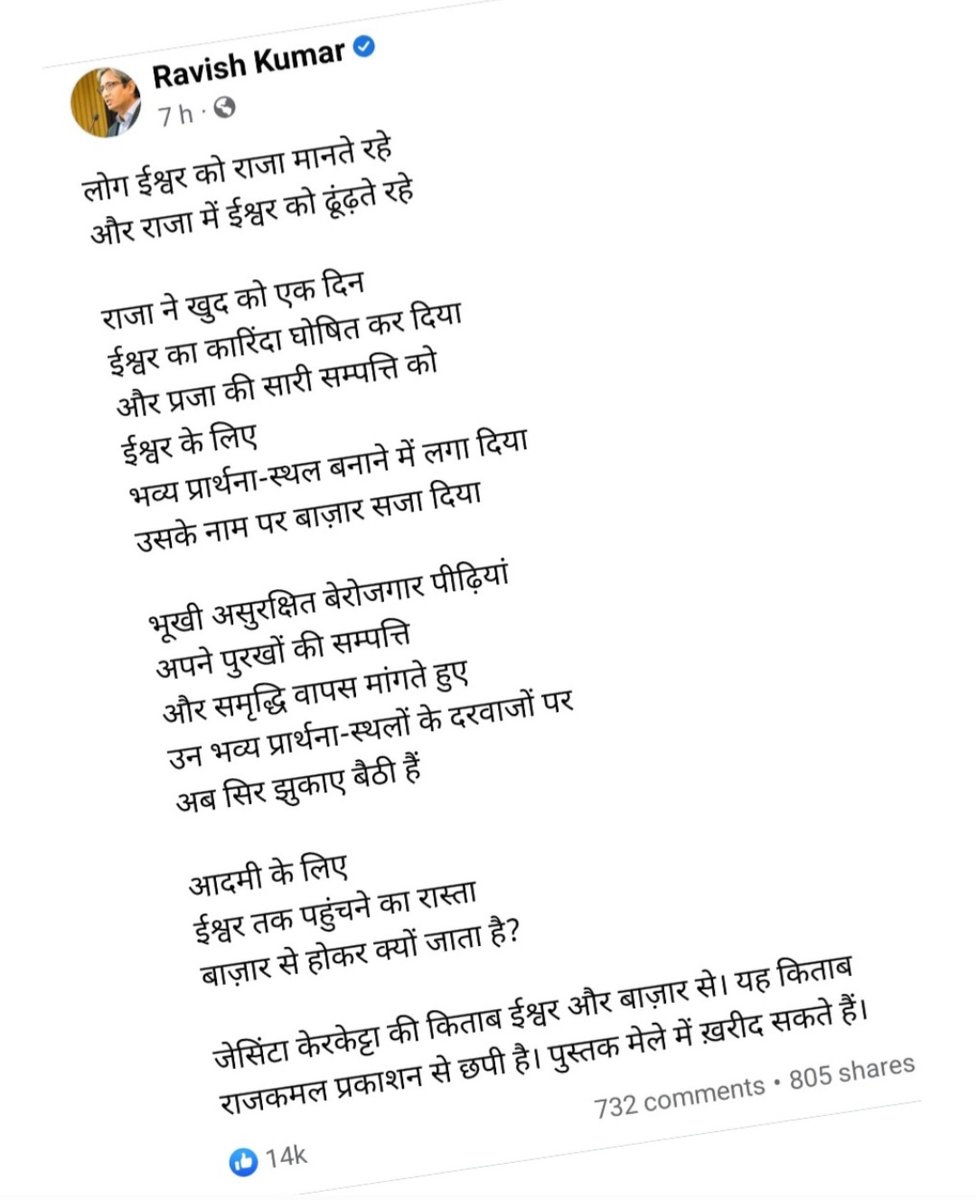 Ravish Kumar
7 h ·
लोग ईश्वर को राजा मानते रहे
और राजा में ईश्वर को ढूंढ़ते रहे
राजा ने खुद को एक दिन
ईश्वर का कारिंदा घोषित कर दिया
और प्रजा की सारी सम्पत्ति को
ईश्वर के लिए
भव्य प्रार्थना-स्थल बनाने में लगा दिया
उसके नाम पर बाज़ार सजा दिया
भूखी असुरक्षित बेरोजगार पीढ़ियां
अपने पुरखों की सम्पत्ति
और समृद्धि वापस मांगते हुए
उन भव्य प्रार्थना-स्थलों के दरवाजों पर
अब सिर झुकाए बैठी हैं
आदमी के लिए
ईश्वर तक पहुंचने का रास्ता
बाज़ार से होकर क्यों जाता है?
जेसिंटा केरकेट्टा की किताब ईश्वर और बाज़ार से। यह किताब
राजकमल प्रकाशन से छपी है। पुस्तक मेले में ख़रीद सकते हैं।
732 comments • 805 shares
14k